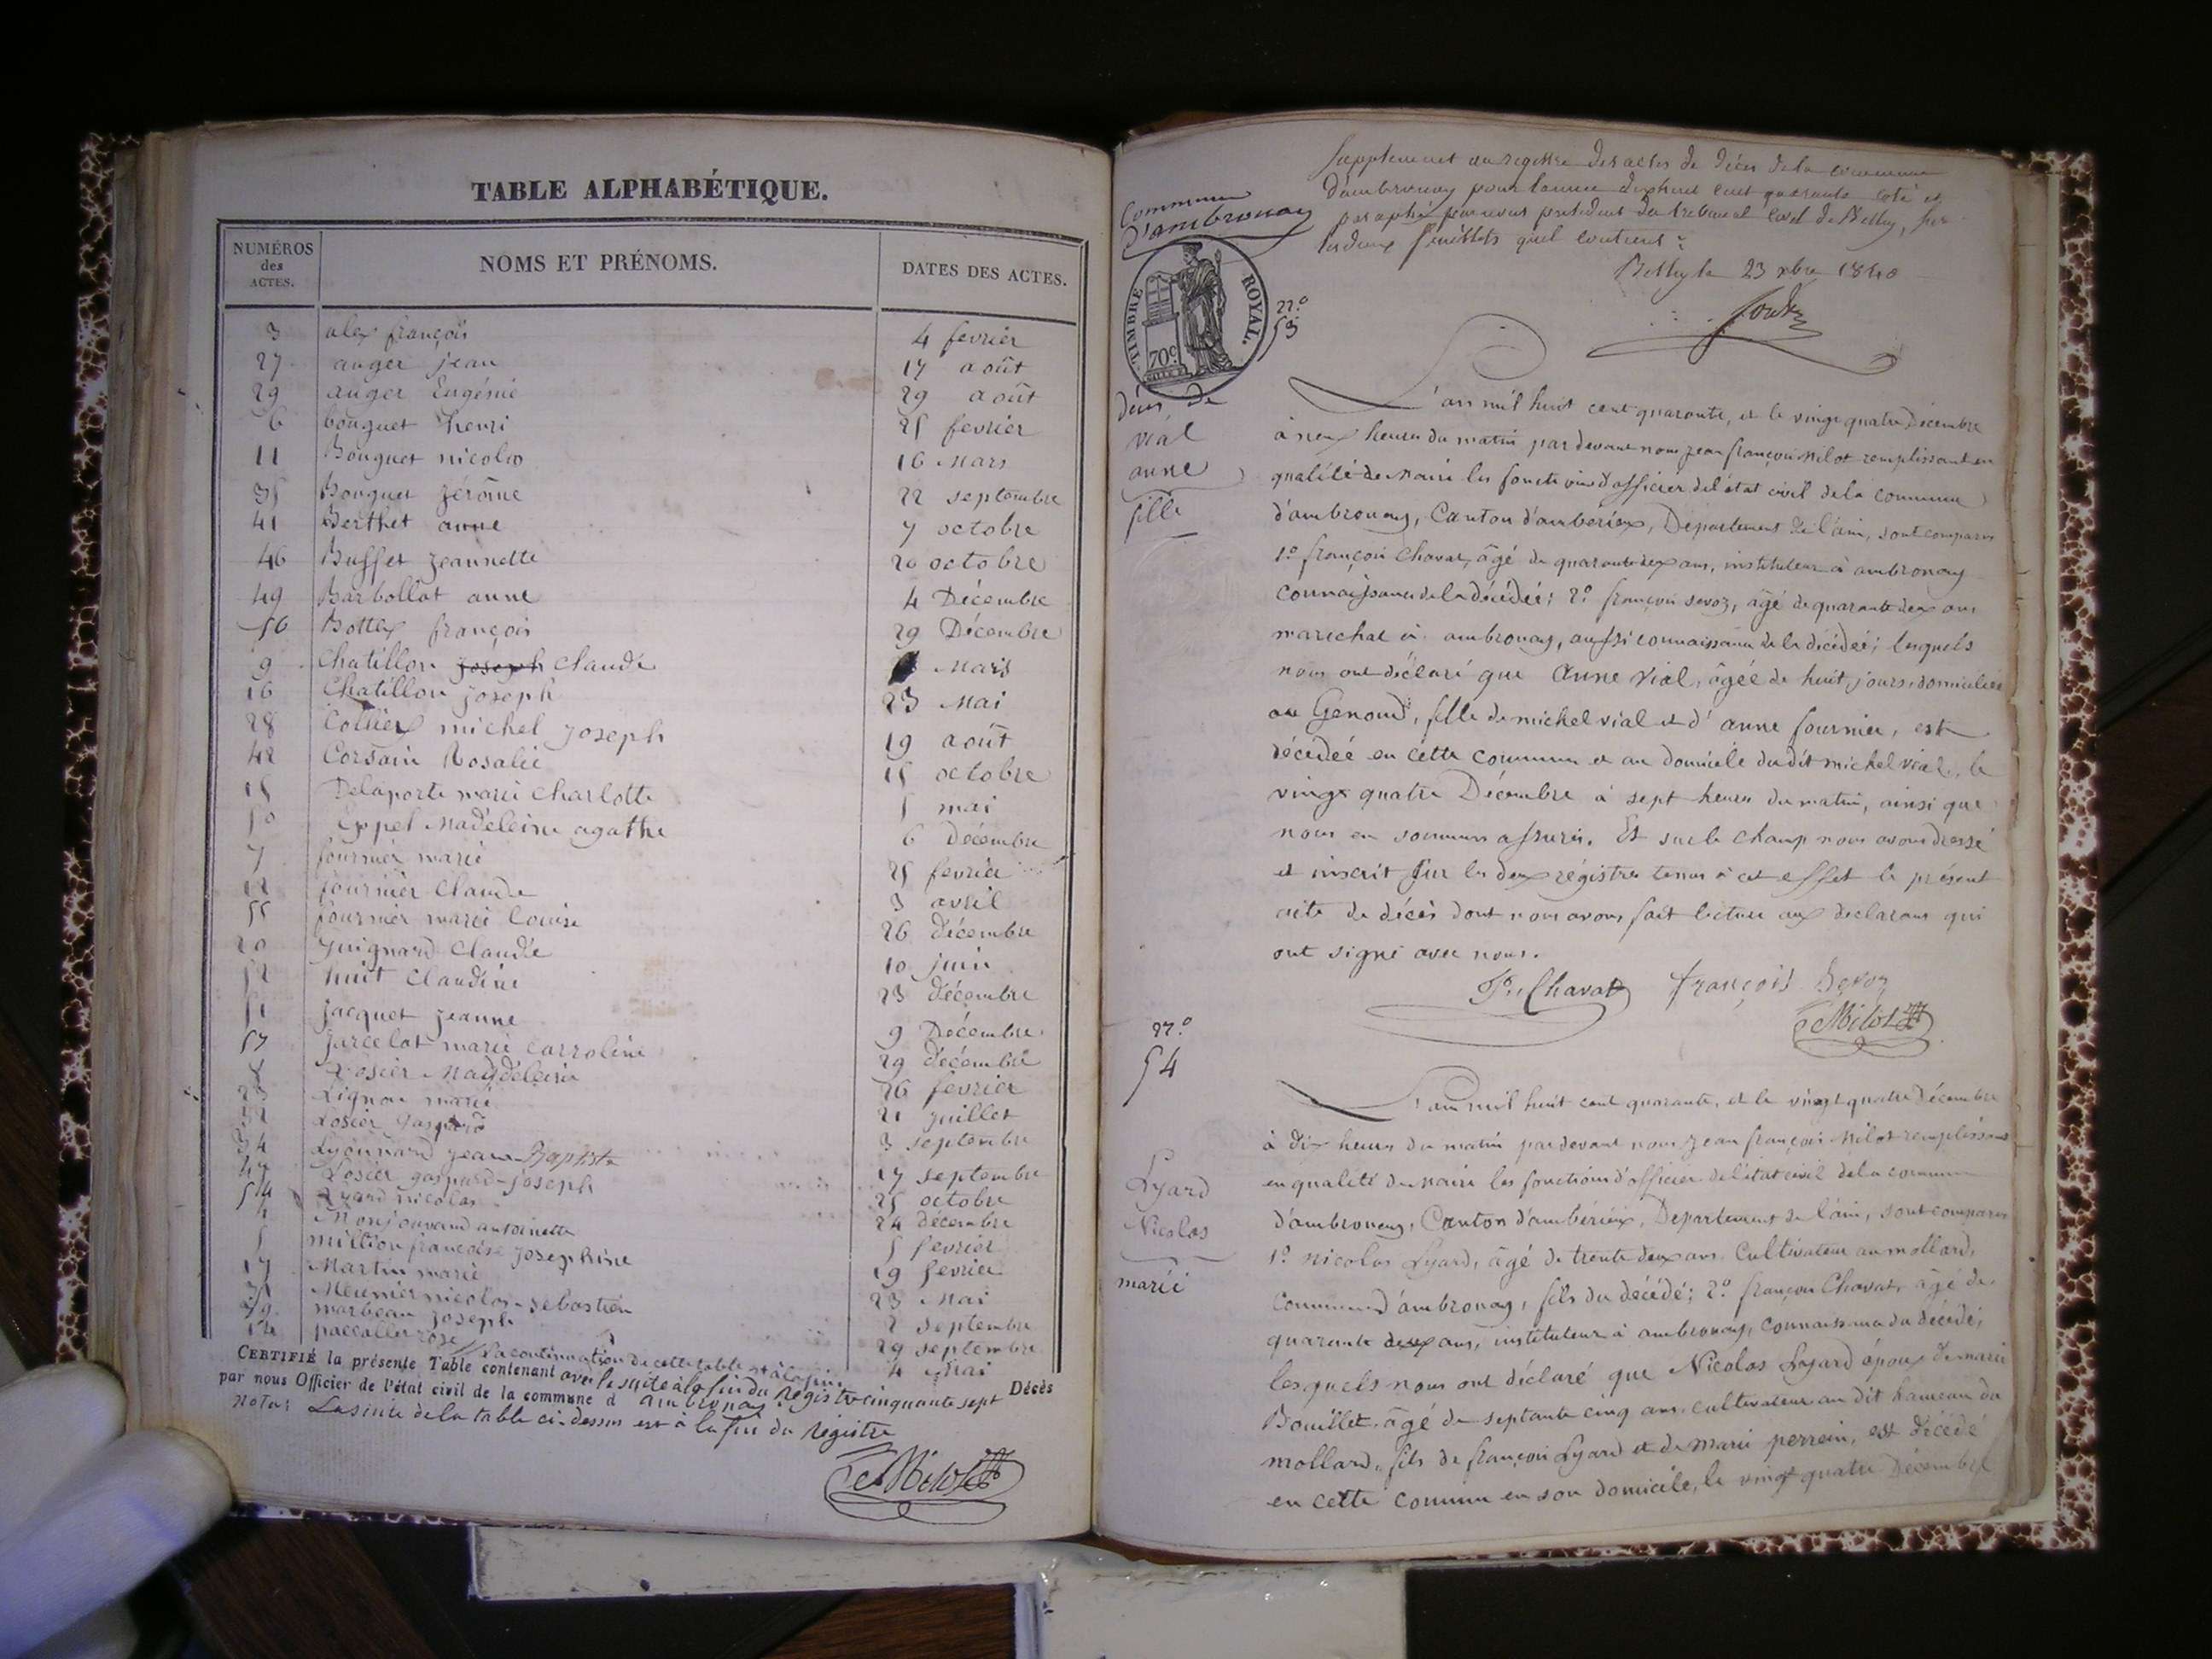 TABLE ALPHABÉTIQUE.
NUMÉROS des ACTES. NOMS ET PRÉNOMS. DATES DES ACTES.
3 alex françois 4 fevrier
27 auger jean 17 août
29 auger Eugénie 29 août
6 bouguet henri 25 fevrier
11 Bouguet nicolas 16 Mars
35 Bouguet Jérôme 22 septembre
41 Berthet anne 7 octobre
46 Buffet Jeannette 20 octobre
49 Barbollat anne 4 Décembre
56 Bottex françois 29 Décembre
9 Chatillon Joseph Claude Mars
16 Chatillon joseph 23 Mai
28 Collier michel Joseph 19 août
42 Corsain Rosalie 15 octobre
15 Delaporte marie charlotte 5 mai
50 Eppel Madeleine agathe 6 Décembre
7 fournier marie 25 fevrier
12 fournier Claude 3 avril
55 fournier marie louise 26 décembre
20 juignard Claudie 10 juin
52 huit Claudine 23 décembre
51 jacquet jeanne 9 Décembre
57 Jarcelat marie carroline 29 décembre
8 Losier Magdeleine 26 fevrier
23 Lignon marie 21 juillet
32 Losier Gaspard 3 septembre
34 Lyonnard jean Baptiste 17 septembre
47 Losier gaspard-joseph 25 octobre
54 Lyard nicolas 24 décembre
4 Monjouvand antoinette 5 fevrier
5 million françoise Josephine 19 fevrier
17 Martin marie 23 Mai
31 Meunier nicolas-sebastien 2 septembre
39 marbeau joseph 29 septembre
14 paccallet rose 4 Mai
La continuation de cette table est à la fin
CERTIFIÉ la présente Table contenant avec la suite à la fin du registre cinquante sept Décès
par nous Officier de l'état civil de la commune d'ambronay.
Nota: La suite de la table ci-dessus est à la fin du Régistre
Milot
Supplement au registre des actes de décès de la commune
d'ambronay pour l'année dixhuit cent quarante coté et
paraphé par nous président du tribunal civil de Belley, sur
les deux feuillets qu'il contient
Belley le 23 xbre 1840
Commune
D'ambronay
TIMBRE ROYAL.
70c
n.o
53
Décès de
vial
anne
fille
L'an mil huit cent quarante, et le vingt quatre Décembre
à neuf heures du matin par devant nous jean françois Milot remplissant en
qualité de Maire les fonctions d'officier de l'état civil de la commune
d'ambronay, Canton d'amberieux, Département de l'ain, sont comparus
1.o françois Chavat, âgé de quarante deux ans, instituteur à ambronay
connaissance de la décédée; 2.o françois sevoz, âgé de quarante deux ans
marechal à ambronay, aussi connaissance de la décédée; lesquels
nous ont déclaré que Anne Vial, âgée de huit jours, domiciliée
au Genoud, fille de michel vial et d'anne fournier, est
décédée en cette commune et au domicile du dit michel vial, le
vingt quatre Décembre à sept heures du matin, ainsi que
nous en sommes assurés. Et sur le champ nous avons dressé
et inscrit sur les deux régistres tenus à cet effet le présent
acte de décès dont nous avons fait lecture aux declarans qui
ont signé avec nous.
Chavat françois Sevoz
Milot
n.o
54
Lyard
Nicolas
marié
L'an mil huit cent quarante, et le vingt quatre décembre
à dix heures du matin par devant nous jean françois Milot remplissant
en qualité de maire les fonctions d'officier de l'état civil de la commune
d'ambronay, Canton d'amberieux, Departement de l'ain, sont comparus
1.o nicolas Lyard, âgé de trente deux ans, Cultivateur au mollard,
commune d'ambronay, fils du décédé; 2.o françois Chavat, âgé de
quarante deux ans, instituteur à ambronay, connaissance du décédé,
lesquels nous ont déclaré que Nicolas Lyard époux de marie
Bouillet, âgé de septante cinq ans, cultivateur au dit hameau du
mollard, fils de françois Lyard et de Marie perrein, est décédé
en cette commune en son domicile, le vingt quatre Décembre